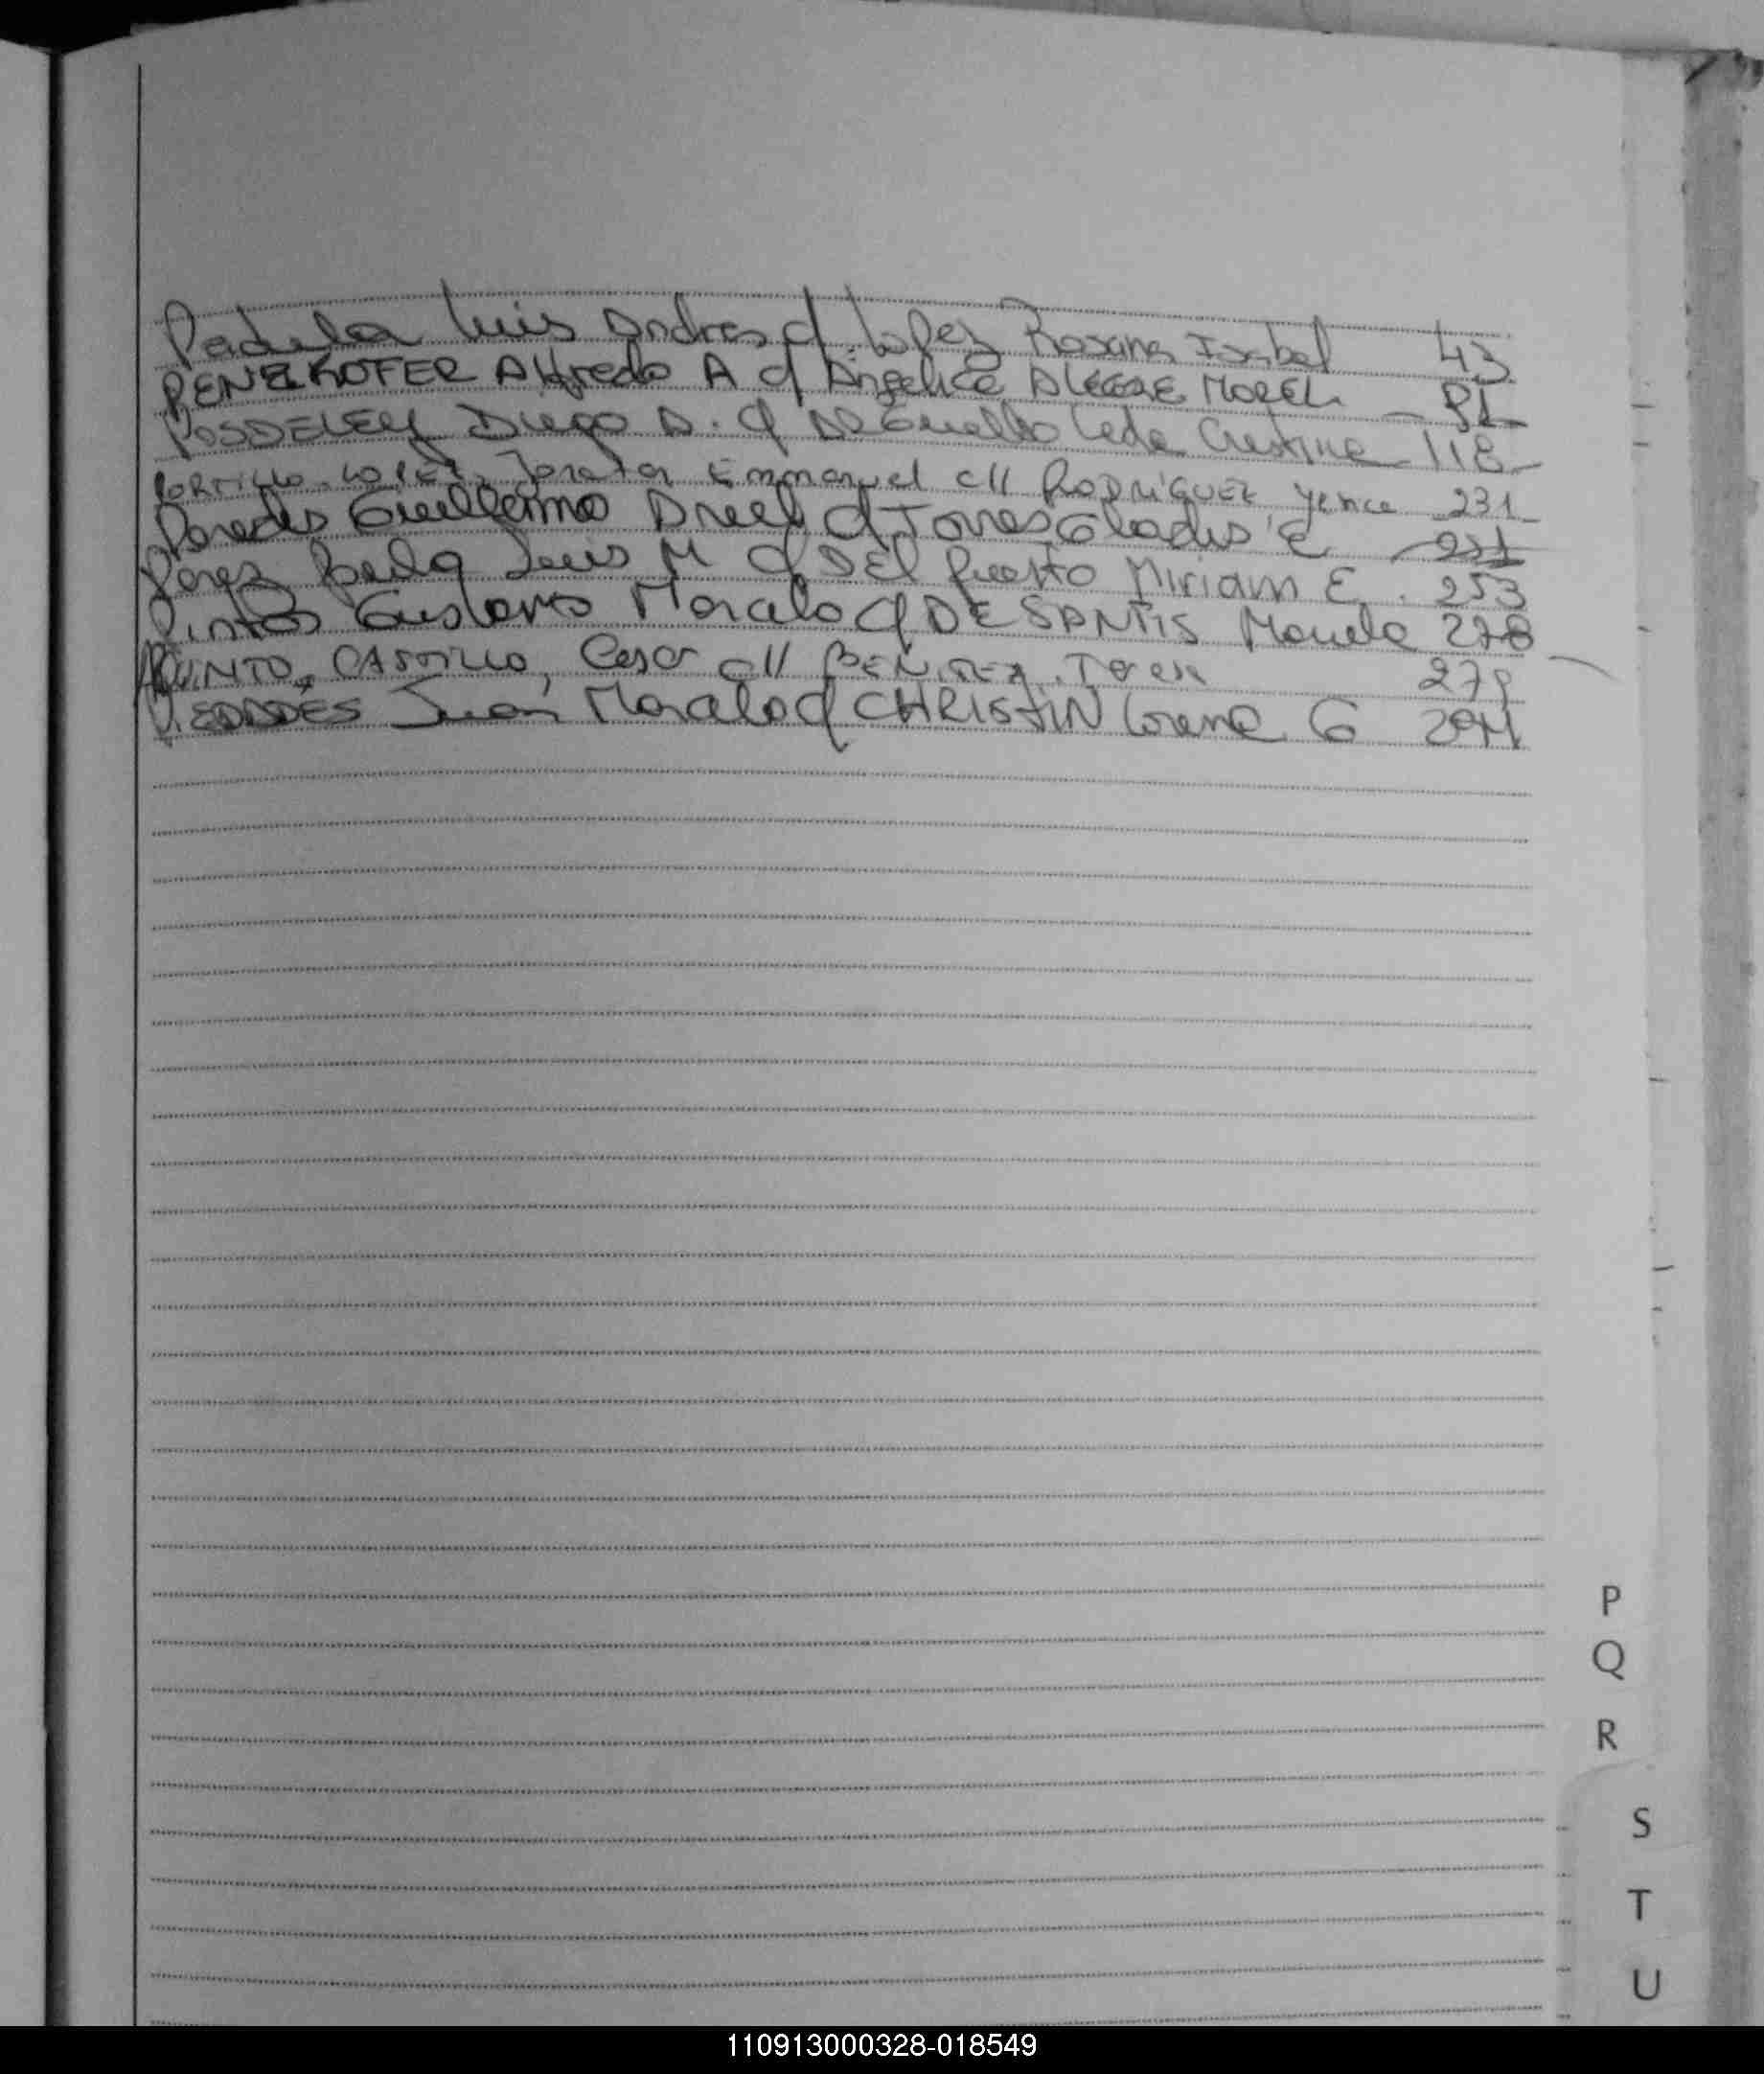 Padula Luis Andres c/ Lopez Rosana Isabel 43
Alfredo A c/ Angelica ALEGRE MOREL 81
POSDELEY Diego A. c/ Leda Cristina 118
PORTILLO LOPEZ, Jonatan Emmanuel c// RODRIGUEZ Yenice 231
Paredes Guillermo Ariel c/ Torres Gladis E 251
Perez Luis M c/ DEl Puerto Miriam E. 253
Pintos Gustavo Marcelo c/ DE SANTIS Mariela 278
PINTO, CASTILLO, Cesar c// BENITEZ, 279
PIEDADES Juan Marcelo c/ CHRISTIN Lorena G 294
P
Q
R
S
T
U
110913000328-018549